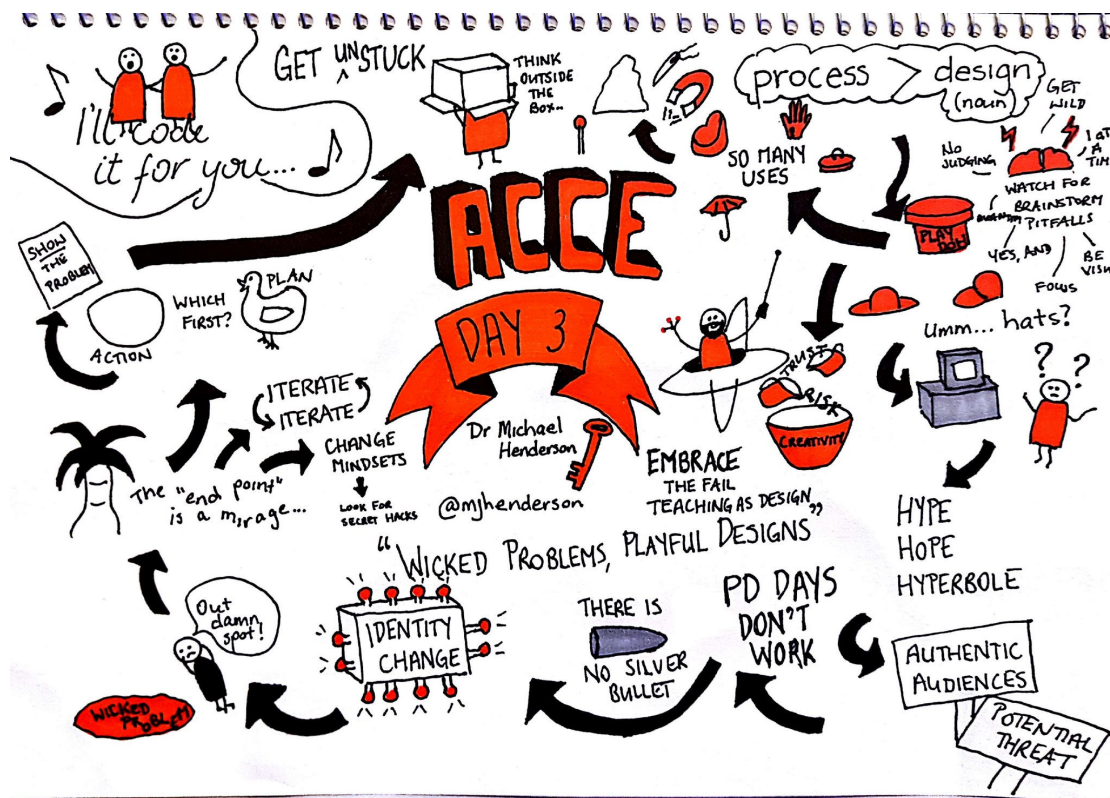 I'll code
it for you...
GET UNSTUCK
THINK
OUTSIDE
THE
BOX...
process > design
(noun)
GET
WILD
1 AT
A
TIM
NO
JUDGING
WATCH FOR
BRAINSTORM
PITFALLS
YES, AND
BE
VISU
FOCUS
SO MANY
USES
PLAY
DOH
ACCE
DAY 3
SHOW
THE
PROBLEM
ACTION
WHICH
FIRST?
PLAN
ITERATE
ITERATE
CHANGE
MINDSETS
LOOK FOR
SECRET HACKS
The "end point"
is a mirage...
Dr Michael
Henderson
@mjhenderson
TRUST
RISK
CREATIVITY
EMBRACE
THE FAIL
TEACHING AS DESIGN
"WICKED PROBLEMS, PLAYFUL DESIGNS"
Umm... hats?
? ?
HYPE
HOPE
HYPERBOLE
AUTHENTIC
AUDIENCES
POTENTIAL
THREAT
PD DAYS
DON'T
WORK
THERE IS
NO SILVER
BULLET
IDENTITY
CHANGE
Out
damn
spot!
WICKED
PROBLEM